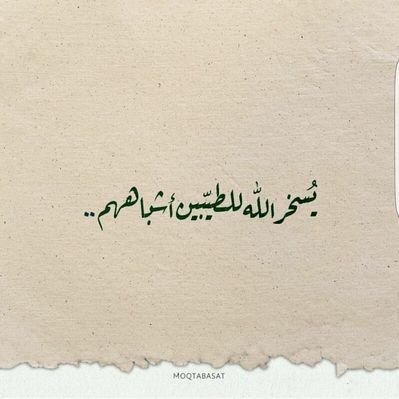 يُسخر الله للطيّبين أشباههم ..
MOQTABASAT